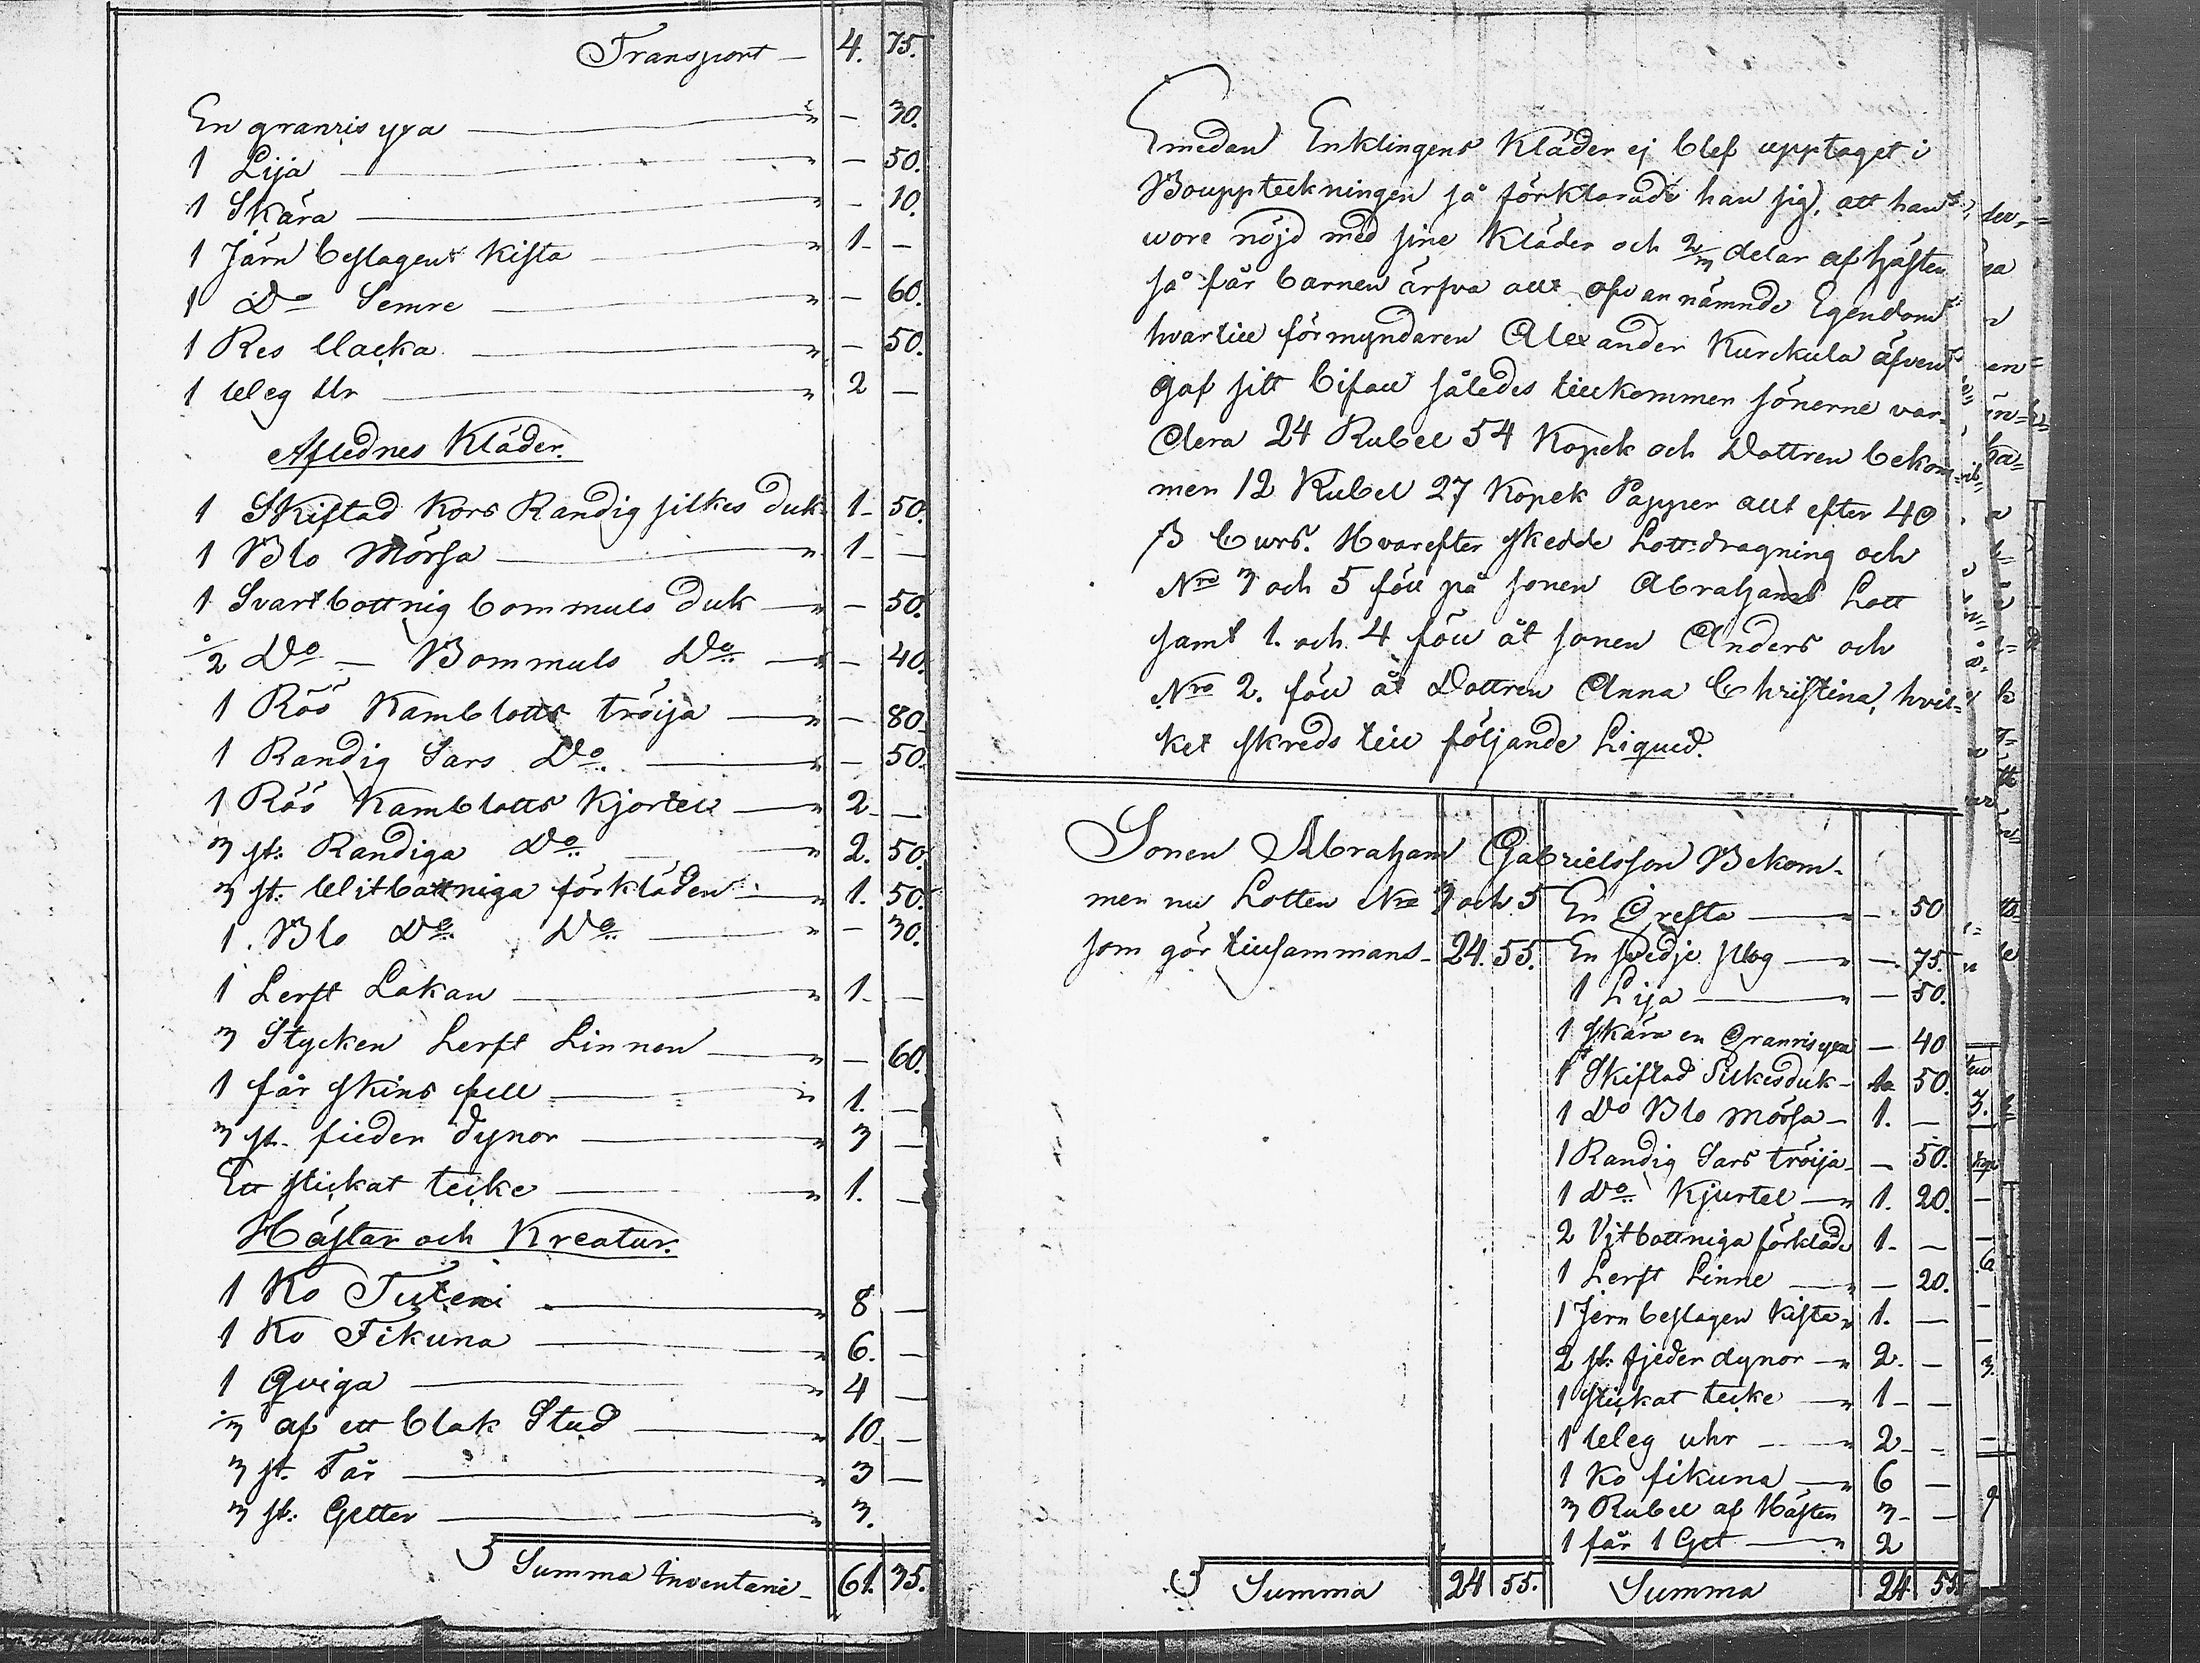 Transport — 4. 75.
En granris yxa — " — 30.
1 Lija — " — 50.
1 Skära — " — 10.
1 Järn beslagen Kista — " 1 — —
1 Do Semre — " — 60.
1 Res Kacka — " — 50.
1 Weg Ur — " 2 —
Aflednes Kläder.
1 Skiftad Kors Randig silkes duk 1 — 50.
1 Blo Mörsa — " 1 — —
1 Svartbottnig bommuls duk — " — 50.
½ Do — Bommuls Do — " — 40.
1 Röö Kamblotts tröija — " — 80.
1 Randig Sars Do — " — 50.
1 Röö Kamblotts Kjortell — " 2 — —
3 st: Randiga Do — " 2. 50.
3 st: Witbottniga förkläden — " 1. 50.
1 Blo Do Do — " — 30.
1 Lerft Lakan — " 1 — —
3 Stycken Lerft Linnen — " — 60.
1 får skins fell — " 1. —
3 st. fieder dynor — " 3 —
Ett stickat tecke — " 1. —
Hästar och Kreatur.
1 Ko Tuteni — " 8 —
1 Ko Fikuna — " 6. —
1 Qviga — " 4 —
⅓ af ett blak Stod — " 10 —
3 st. Får — " 3 —
3 st: Getter — " 3.
Summa Inventarie — 61. 35.
Emedan Enklingens Kläder ej blef upptaget i
Bouppteckningen så förklarade han sig, att han
wore nöjd med sine Kläder och 2/3 delar af hästen
så får barnen ärfva allt ofvannämnde Egendom
hvartill förmyndaren Alexander Kurckula äfven
gaf sitt bifall således tillkommer sönerne var-
dera 24 Rubel 54 Kopek och Dottren bekom-
mer 12 Rubel 27 Kopek Papper allt efter 40
ß Curs. Hvarefter skedde Lottdragning och
Nro 3 och 5 föll på sonen Abrahams Lott
samt 1. och 4 föll åt sonen Anders och
Nro 2. föll åt Dottren Anna Christina, hvil-
ket skreds till följande Liquid.
Sonen Abraham Gabrielsson Bekom-
mer nu Lotten Nro 3 och 5
som gör tillsammans — 24. 55.
En Grefta — " — 50
En svedje plog — " — 75.
1 Lija — " — 50.
1 Skära en Granrisyxa — 40
1 Skiftad Silkesduk — 1. 50.
1 Do Blo Mörsa — 1. —
1 Randig Sars tröija — — 50.
1 Do Kjurtel — " 1. 20.
2 Vitbottniga förkläde 1 — —
1 Lerft Linne — " — 20.
1 Jern beslagen Kista " 1. —
2 st: fjeder dynor — " 2. —
1 stickat tecke — " 1 — —
1 Weg uhr — " 2 — —
1 Ko fikuna — " 6 —
3 Rubel af Hästen 3 — —
1 får 1 Get — " 2
Summa 24 55. Summa 24 55